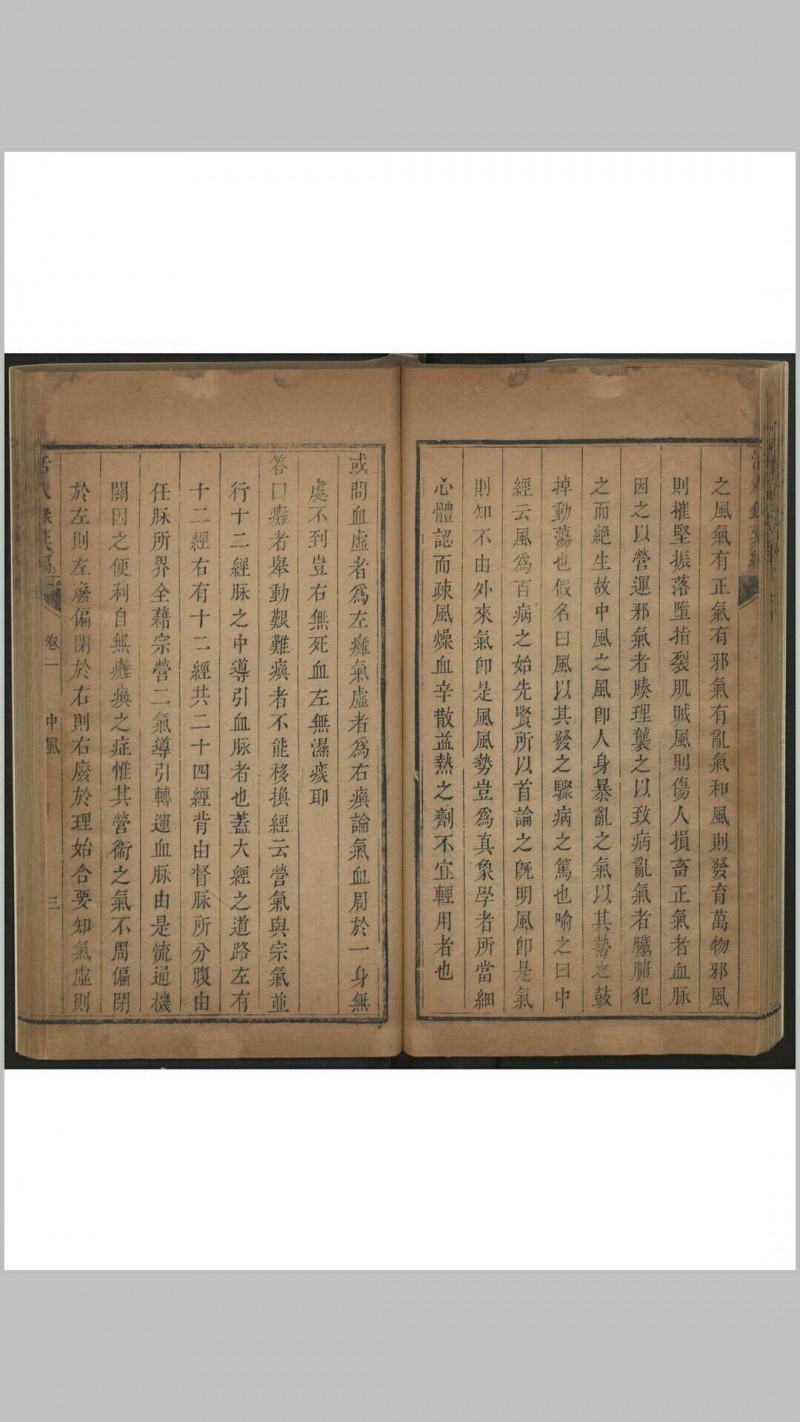 之風氣有正氣有邪氣有亂氣和風則發育萬物邪風
則摧堅振落墮指裂肌賊風則傷人損畜正氣者血脉
因之以營運邪氣者腠理襲之以致病亂氣者臟腑犯
之而絶生故中風之風卽人身暴亂之氣以其勢之鼓
掉動蕩也假名曰風以其發之驟病之篤也喻之曰中
經云風爲百病之始先賢所以首論之旣明風卽是氣
則知不由外來氣卽是風風勢豈爲真象學者所當細
心體認而疎風燥血辛散益熱之劑不宜輕用者也
或問血虛者爲左癱氣虛者爲右瘓論氣血周於一身無
處不到豈右無死血左無濕痰耶
答曰癱者舉動艱難瘓者不能移換經云營氣與宗氣並
行十二經脉之中導引血脉者也蓋大經之道路左有
十二經右有十二經共二十四經背由督脉所分腹由
任脉所界全藉宗營二氣導引轉運血脉由是流通機
關因之便利自無癱瘓之症惟其營衞之氣不周偏閉
於左則左廢偏閉於右則右廢於理始合要知氣虛則
卷一
中風
三